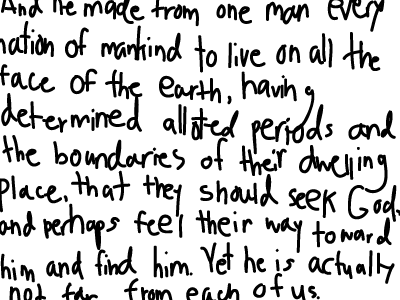 And he made from one man every
nation of mankind to live on all the
face of the earth, having
determined allotted periods and
the boundaries of their dwelling
place, that they should seek God,
and perhaps feel their way toward
him and find him. Yet he is actually
not far from each of us.